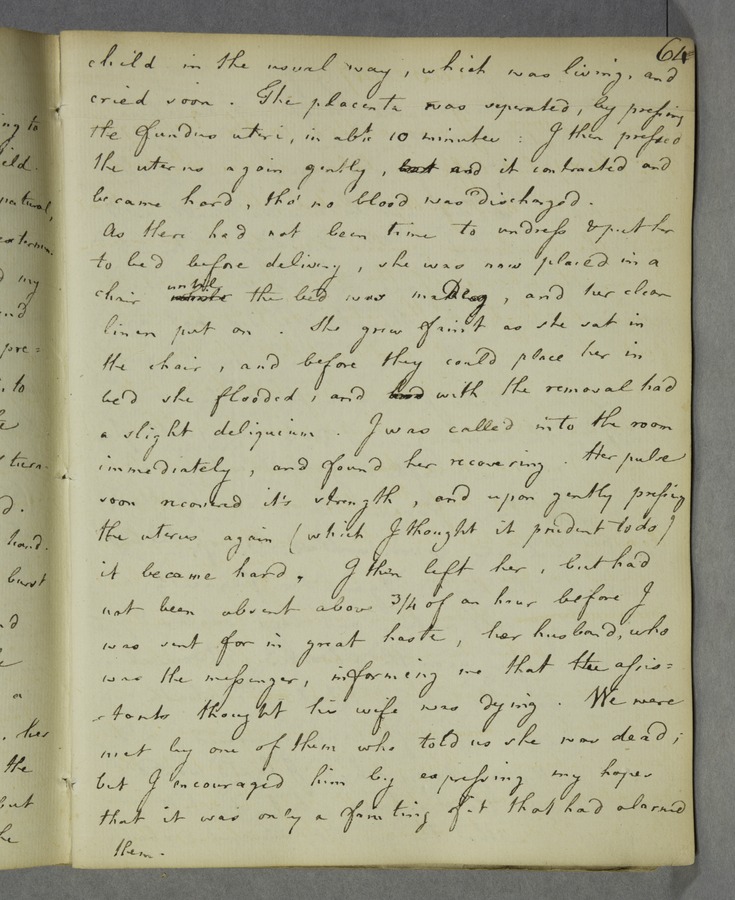 64
child in the usual way, which was living, and
cried soon. The placenta was seperated, by pressing
the fundus uteri, in abt. 10 minutes: I then pressed
the uterus again gently, but and it contracted and
became hard, tho' no blood was discharged.
As there had not been time to undress & put her
to bed before delivery, she was now placed in a
until
chair the bed was making, and her clean
linen put on. She grew faint as she sat in
the chair, and before they could place her in
bed she flooded, and had with the removal had
a slight deliquium. I was called into the room
immediately, and found her recovering. Her pulse
soon recovered it's strength, and upon gently pressing
the uterus again (which I thought it prudent to do)
it became hard. I then left her, but had
not been absent above 3/4 of an hour before I
was sent for in great haste, her husband, who
was the messenger, informing me that the assis=
tants thought his wife was dying. We were
met by one of them who told us she was dead;
but I encouraged him by expressing my hopes
that it was only a fainting fit that had alarmed
them.
ng to
ild.
natural,
extermin.
d my
and
pre=
to
turn
d.
hand.
burst
nd
a
her
the
but
he